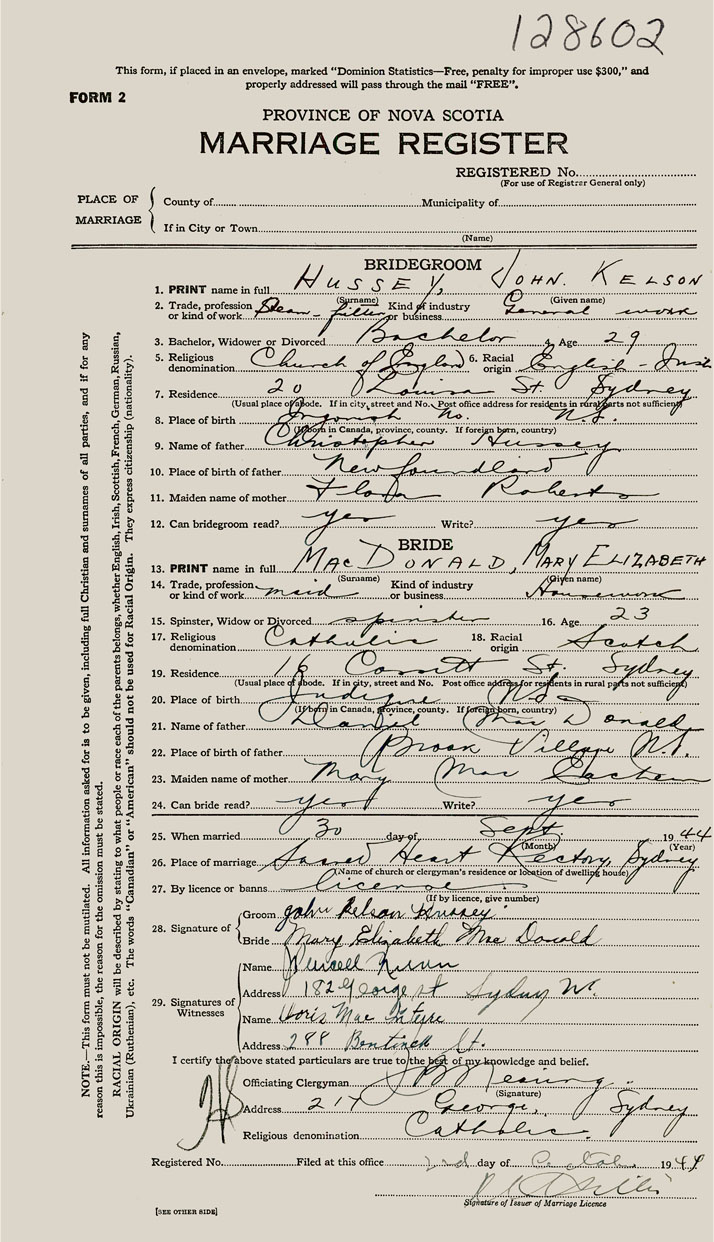 128602
This form, if placed in an envelope, marked "Dominion Statistics—Free, penalty for improper use $300," and
properly addressed will pass through the mail "FREE".
FORM 2
PROVINCE OF NOVA SCOTIA
MARRIAGE REGISTER
REGISTERED No.
(For use of Registrar General only)
PLACE OF MARRIAGE
County of Municipality of
If in City or Town
(Name)
NOTE.—This form must not be mutilated. All information asked for is to be given, including full Christian and surnames of all parties, and if for any
reason this is impossible, the reason for the omission must be stated.
RACIAL ORIGIN will be described by stating to what people or race each of the parents belongs, whether English, Irish, Scottish, French, German, Russian,
Ukrainian (Ruthenian), etc. The words "Canadian" or "American" should not be used for Racial Origin. They express citizenship (nationality).
BRIDEGROOM
1. PRINT name in full HUSSEY, JOHN. KELSON
(Surname) (Given name)
2. Trade, profession or kind of work fitter Kind of industry or business General work
3. Bachelor, Widower or Divorced Bachelor Age 29
5. Religious denomination Church of England 6. Racial origin English -
7. Residence 20 Louisa St. Sydney
(Usual place of abode. If in city, street and No. Post office address for residents in rural parts not sufficient)
8. Place of birth N.S.
(If born in Canada, province, county. If foreign born, country)
9. Name of father Christopher Hussey
10. Place of birth of father Newfoundland
11. Maiden name of mother Flora Roberts
12. Can bridegroom read? yes Write? yes
BRIDE
13. PRINT name in full MACDONALD, MARY ELIZABETH
(Surname) (Given name)
14. Trade, profession or kind of work maid Kind of industry or business Housework
15. Spinster, Widow or Divorced spinster 16. Age 23
17. Religious denomination Catholic 18. Racial origin Scotch
19. Residence 16 Cossitt St. Sydney
(Usual place of abode. If in city, street and No. Post office address for residents in rural parts not sufficient)
20. Place of birth Judique N.S.
(If born in Canada, province, county. If foreign born, country)
21. Name of father Daniel MacDonald
22. Place of birth of father Brook Village N.S.
23. Maiden name of mother Mary MacEachern
24. Can bride read? yes Write? yes
25. When married 30 day of Sept. 1944
(Month) (Year)
26. Place of marriage Sacred Heart Rectory, Sydney
(Name of church or clergyman's residence or location of dwelling house)
27. By licence or banns licence
(If by licence, give number)
28. Signature of
Groom John Kelson Hussey
Bride Mary Elizabeth MacDonald
29. Signatures of Witnesses
Name Nunn
Address 182 George st Sydney
Name Doris MacIntyre
Address 288 Bentinck St.
I certify the above stated particulars are true to the best of my knowledge and belief.
Officiating Clergyman
(Signature)
Address George, Sydney
Religious denomination Catholic
Registered No. Filed at this office 2nd day of 1944
Signature of Issuer of Marriage Licence
[SEE OTHER SIDE]